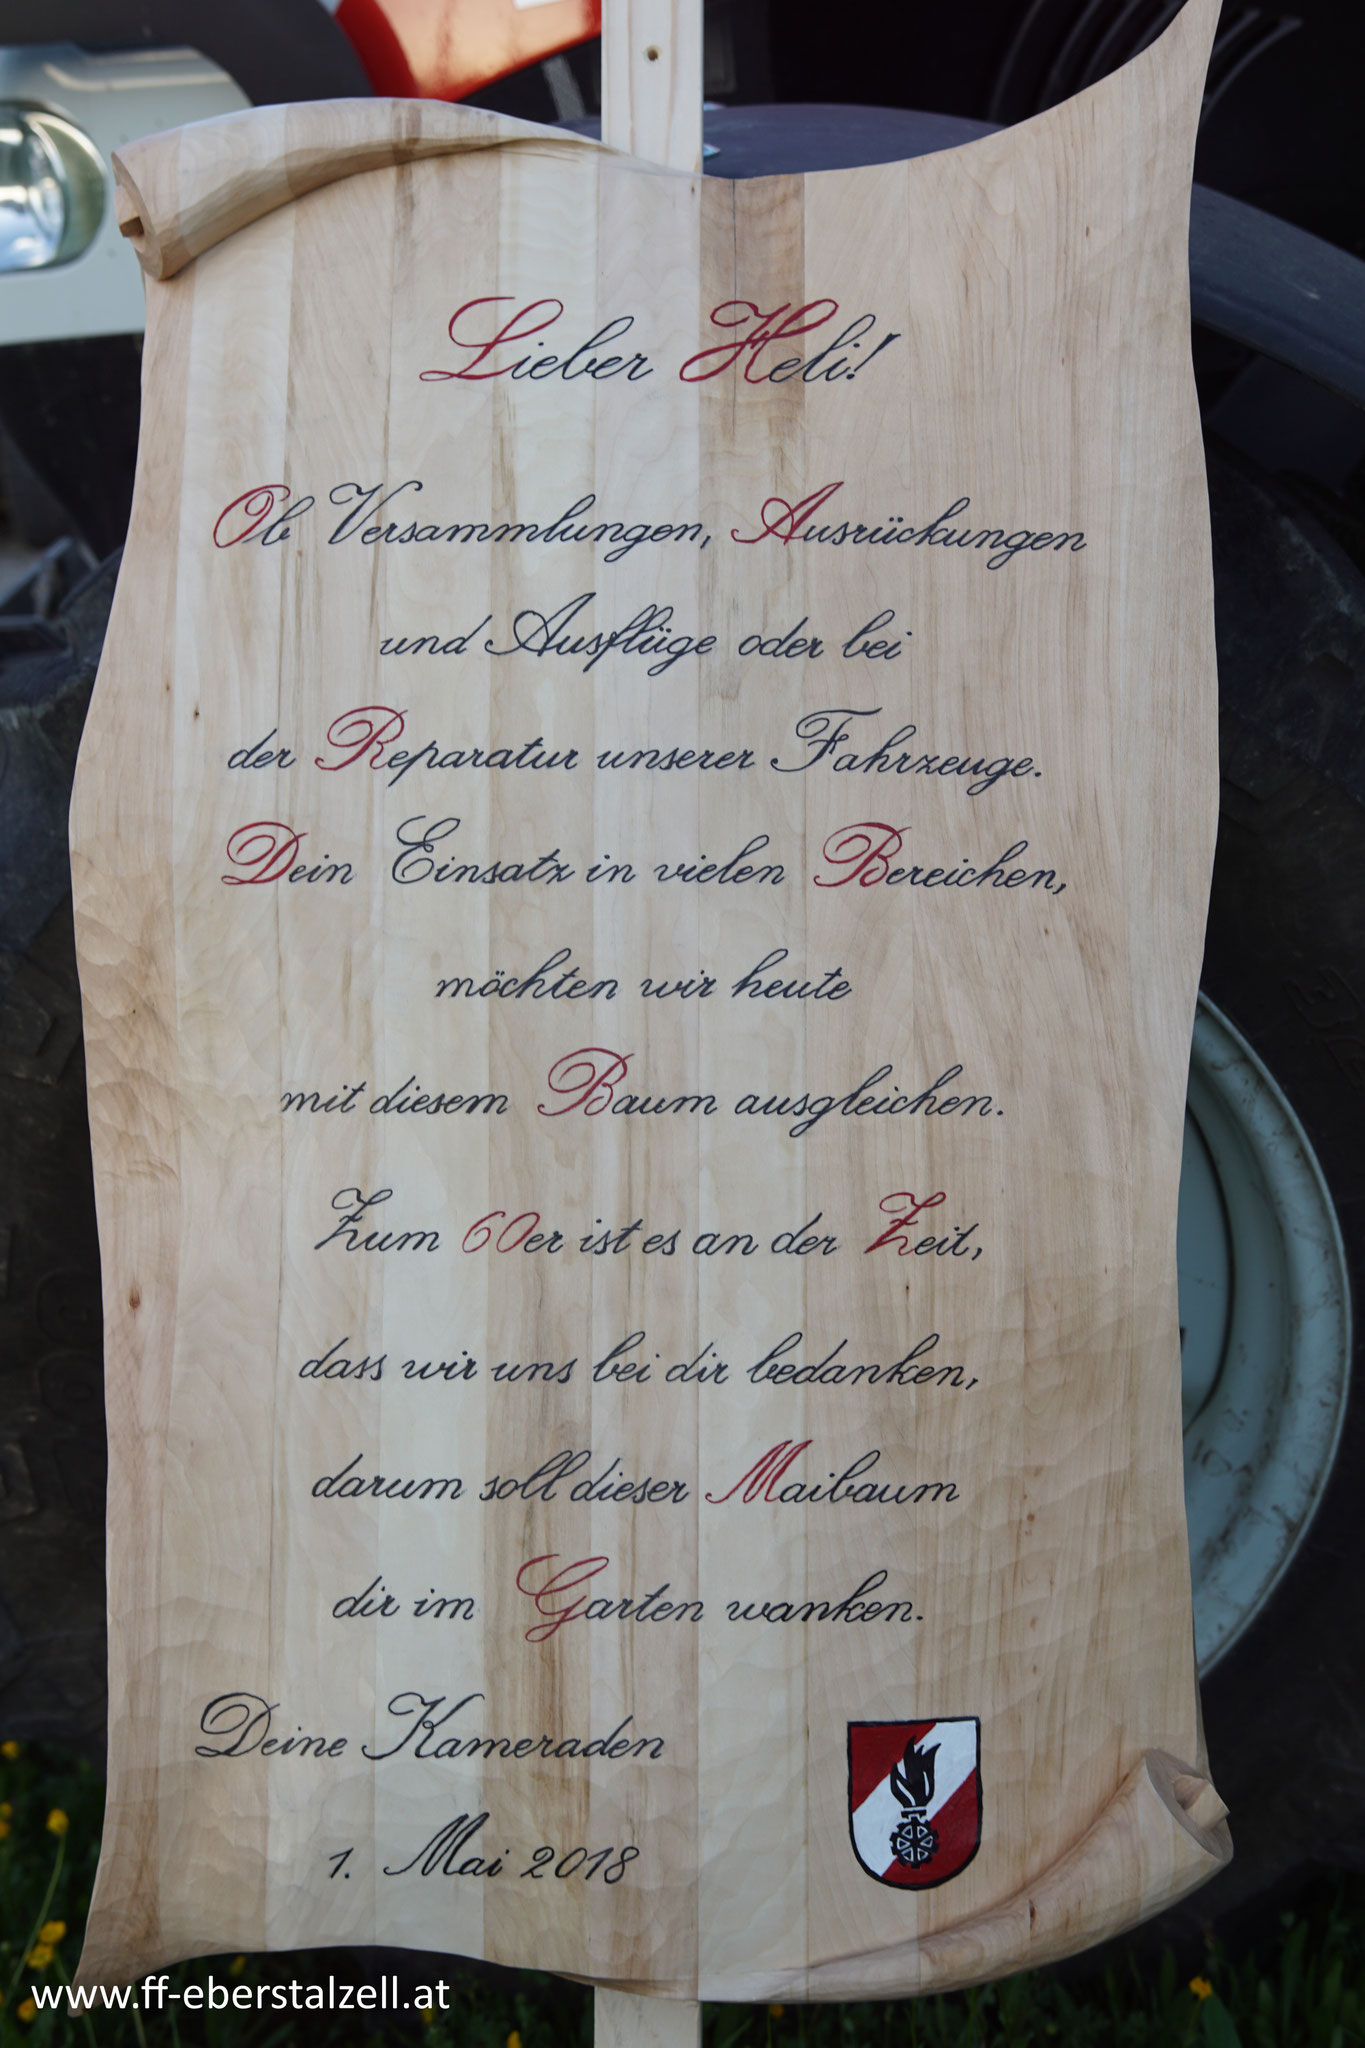 Lieber Heli!
Ob Versammlungen, Ausrückungen
und Ausflüge oder bei
der Reparatur unserer Fahrzeuge.
Dein Einsatz in vielen Bereichen,
möchten wir heute
mit diesem Baum ausgleichen.
Zum 60er ist es an der Zeit,
dass wir uns bei dir bedanken,
darum soll dieser Maibaum
dir im Garten wanken.
Deine Kameraden
1. Mai 2018
www.ff-eberstalzell.at